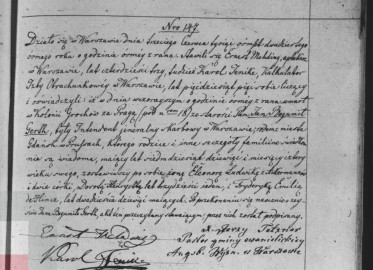 Nro 149.
Działo się w Warszawie dnia trzeciego Czerwca tysiąc ośmset dwudziestego
ósmego roku o godzinie ósmej z rana. Stawili się Ernest Mehding, aptekarz
w Warszawie, lat czterdzieści trzy, tudzież Karol Jenike, Kalkulator
Izby Obrachunkowej w Warszawie, lat pięćdziesiąt pięć sobie liczący
i oświadczyli iż w dniu wczorajszym o godzinie ósmej z rana umarł
w Kolonii Grochów za Pragą (pod N 18) ze starości Benjamin
Groth, były Intendent jeneralny skarbowy w Warszawie, rodem z miasta
Gdańsk w Prusach, którego rodzice i inne szczegóły familijne świadkom
nie są wiadome, mający lat siedmdziesiąt dziewięć i miesięcy cztery
wieku swego, zostawiwszy po sobie żonę Eleonorę Ludwikę z
i dwie córki, Dorotę lat trzydzieści siedm, i Fryderykę Emilią
de lat dwadzieścia dziewięć mające. Po przekonaniu się naocznie o zej-
ściu Benjamina Groth, akt ten przeczytany stawającym, przez nich został podpisany.
Ernst Mehding
Karol Jenike
Jerzy Tetzner
Pastor gminy ewanielickiej
Augsb. Wyzn. w Warszawie